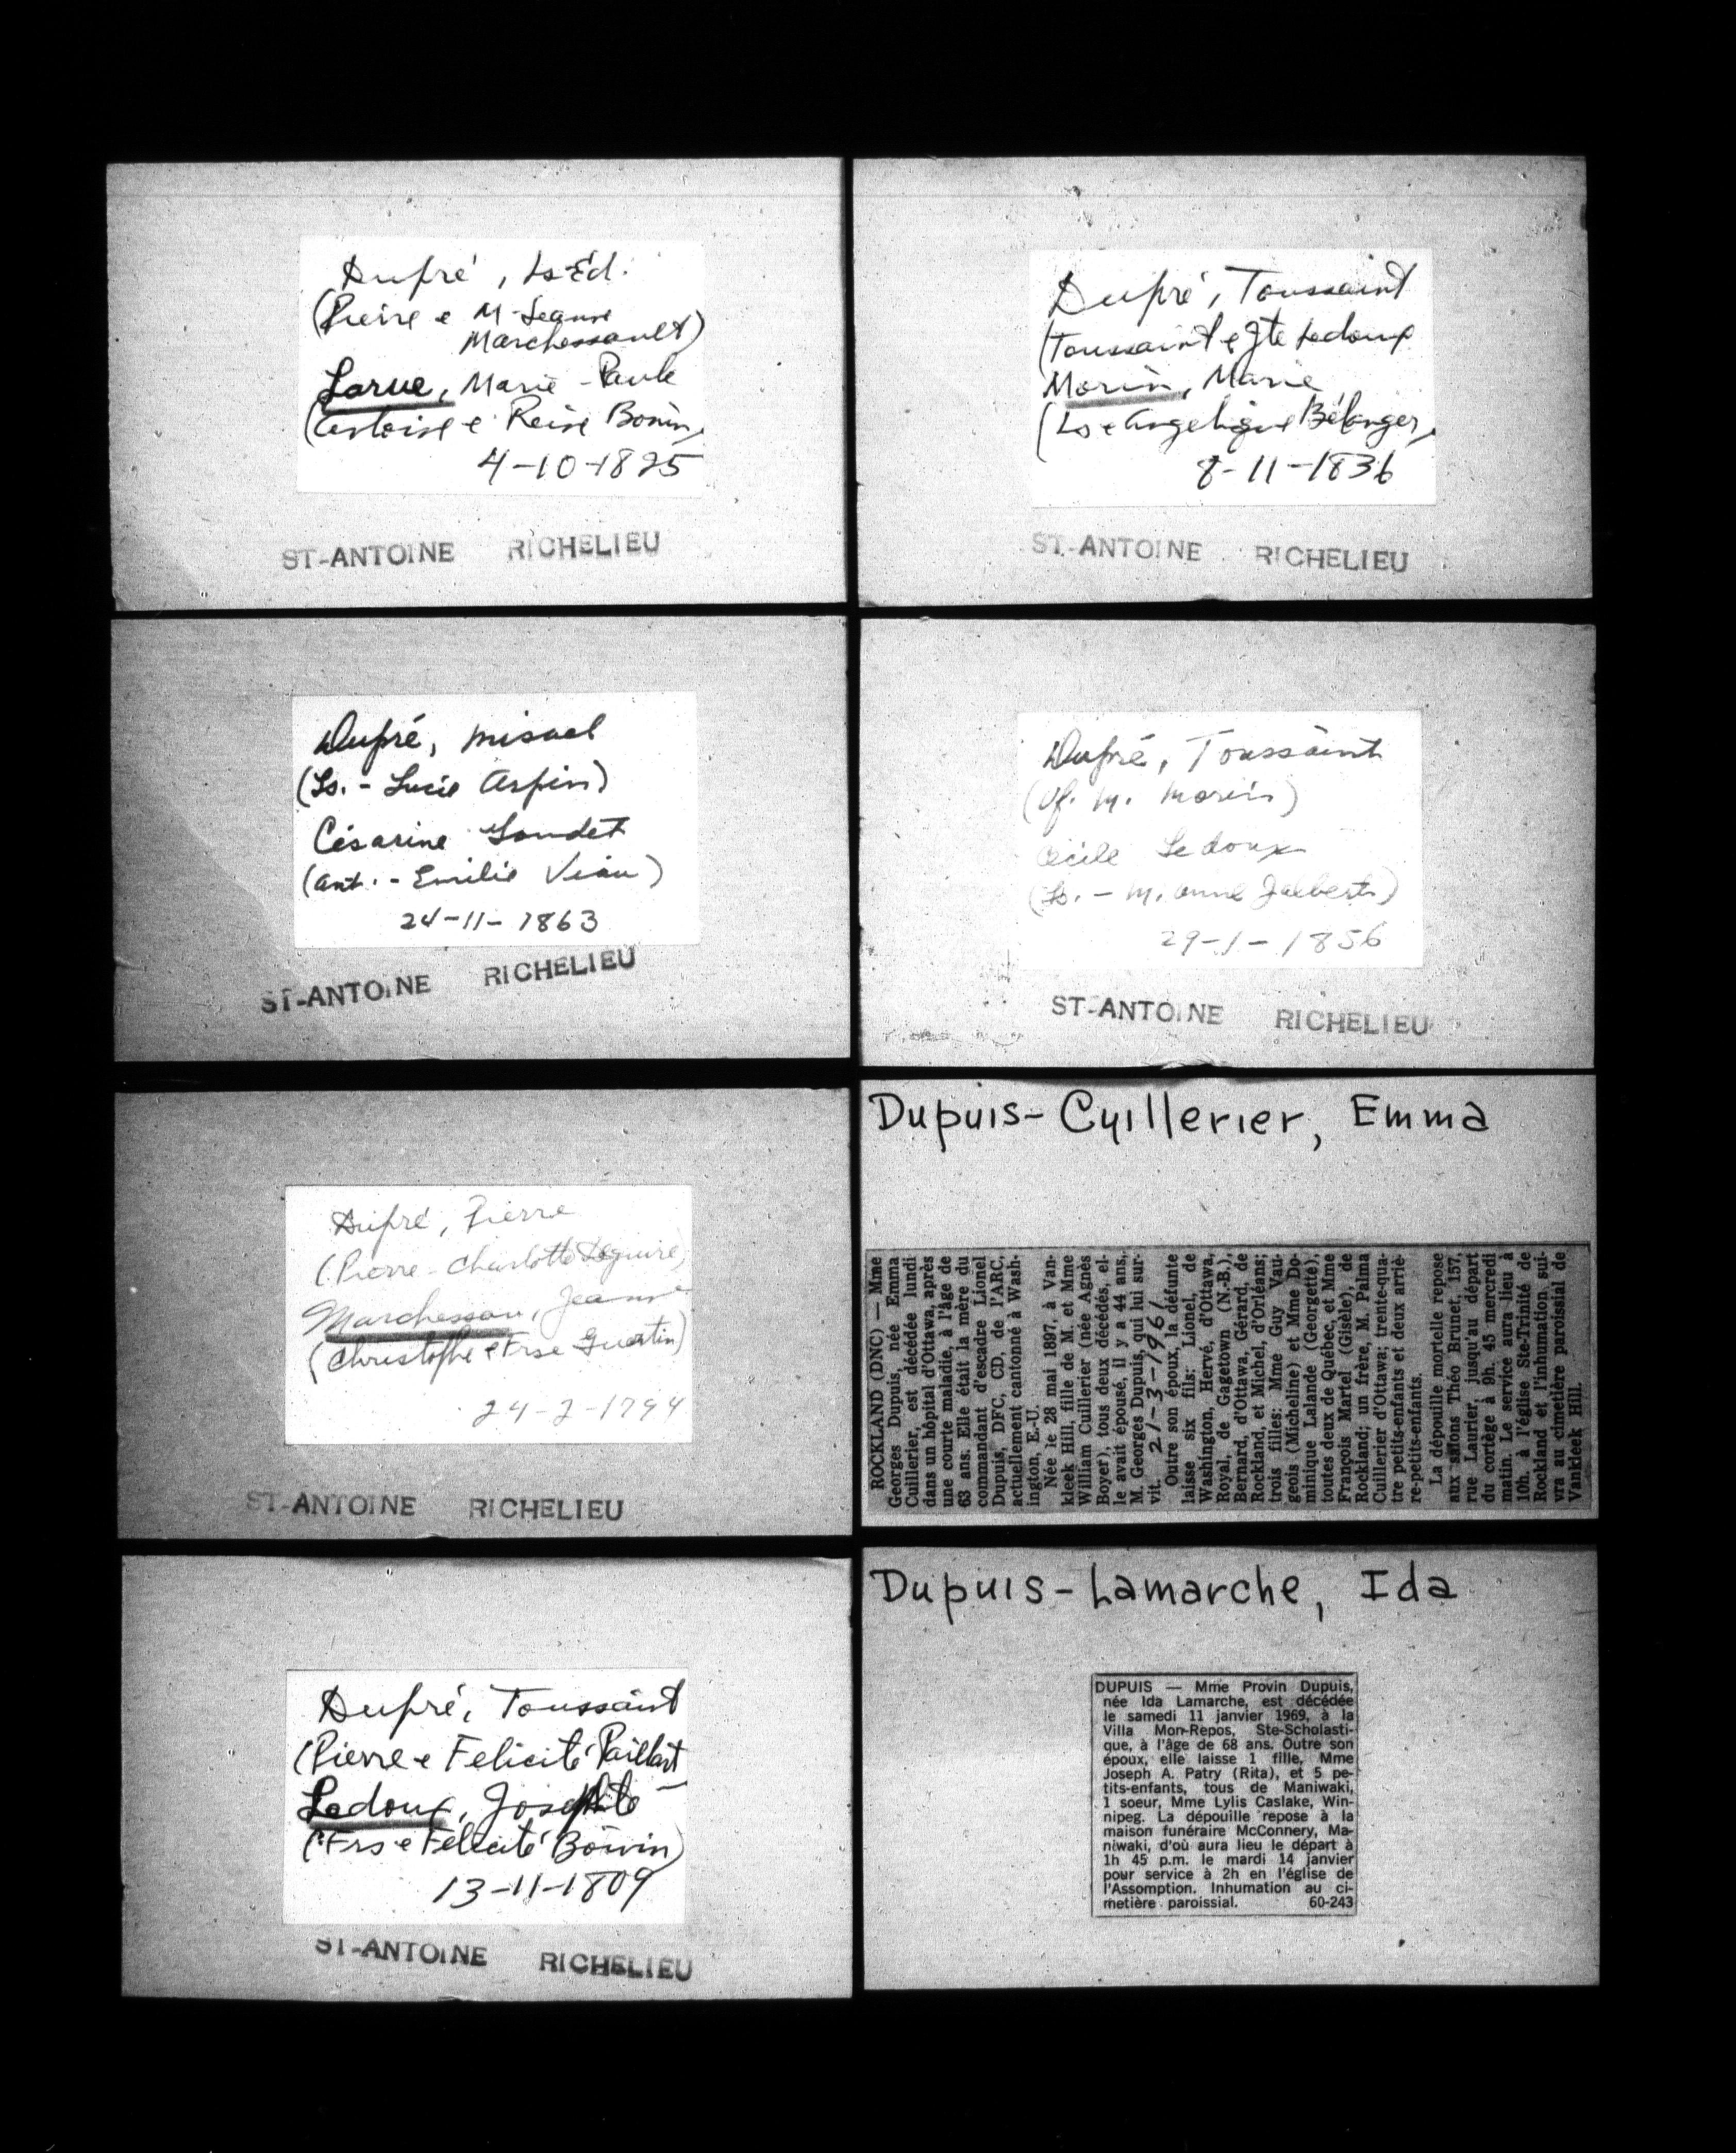 Dupré, Ls-Éd.
(Pierre e M-Jeanne
Marchessault)
Larue, Marie-Paule
(Antoise e Reine Bonin,
4-10-1825
ST-ANTOINE RICHELIEU
Dupré, Toussaint
(Toussaint e Jte Ledoux
Morin, Marie
(Ls e Angelique Bélanger,
8-11-1836
ST-ANTOINE RICHELIEU
Dupré, Misael
(Ls. - Lucie Arpin)
Césarine Gaudet
(Ant. - Emilie Viau)
24-11-1863
ST-ANTOINE RICHELIEU
Dupré, Toussaint
(Vf. M. Morin)
Cécile Ledoux
(Ls. - M. Anne Jalbert)
29-1-1856
ST-ANTOINE RICHELIEU
Dupré, Pierre
(Pierre - Charlotte Léguire,
Marchessau, Jeanne
(Christophe e Frse Guertin)
24-2-1794
ST-ANTOINE RICHELIEU
Dupuis-Cyillerier, Emma
ROCKLAND (DNC) — Mme
Georges Dupuis, née Emma
Cuillerier, est décédée lundi
dans un hôpital d'Ottawa, après
une courte maladie, à l'âge de
63 ans. Elle était la mère du
commandant d'escadre Lionel
Dupuis, DFC, CD, de l'ARC,
actuellement cantonné à Wash-
ington, E.-U.
Née le 28 mai 1897, à Van-
kleek Hill, fille de M. et Mme
William Cuillerier (née Agnès
Boyer), tous deux décédés, el-
le avait épousé, il y a 44 ans,
M. Georges Dupuis, qui lui sur-
vit. 21-3-1961
Outre son époux, la défunte
laisse six fils: Lionel, de
Washington, Hervé, d'Ottawa,
Royal, de Gagetown (N.-B.),
Bernard, d'Ottawa, Gérard, de
Rockland, et Michel, d'Orléans;
trois filles: Mme Guy Vau-
geois (Micheline) et Mme Do-
minique Lalande (Georgette),
toutes deux de Québec, et Mme
François Martel (Gisèle), de
Rockland; un frère, M. Palma
Cuillerier d'Ottawa; trente-qua-
tre petits-enfants et deux arriè-
re-petits-enfants.
La dépouille mortelle repose
aux salons Théo Brunet, 157,
rue Laurier, jusqu'au départ
du cortège à 9h. 45 mercredi
matin. Le service aura lieu à
10h. à l'église Ste-Trinité de
Rockland et l'inhumation sui-
vra au cimetière paroissial de
Vankleek Hill.
Dupré, Toussaint
(Pierre e Felicité Paillart
Ledoux, Josephte
(Frs e Félicité Boivin)
13-11-1809
ST-ANTOINE RICHELIEU
Dupuis-Lamarche, Ida
DUPUIS — Mme Provin Dupuis,
née Ida Lamarche, est décédée
le samedi 11 janvier 1969, à la
Villa Mon-Repos, Ste-Scholasti-
que, à l'âge de 68 ans. Outre son
époux, elle laisse 1 fille, Mme
Joseph A. Patry (Rita), et 5 pe-
tits-enfants, tous de Maniwaki,
1 soeur, Mme Lylis Caslake, Win-
nipeg. La dépouille repose à la
maison funéraire McConnery, Ma-
niwaki, d'où aura lieu le départ à
1h 45 p.m. le mardi 14 janvier
pour service à 2h en l'église de
l'Assomption. Inhumation au ci-
metière paroissial. 60-243